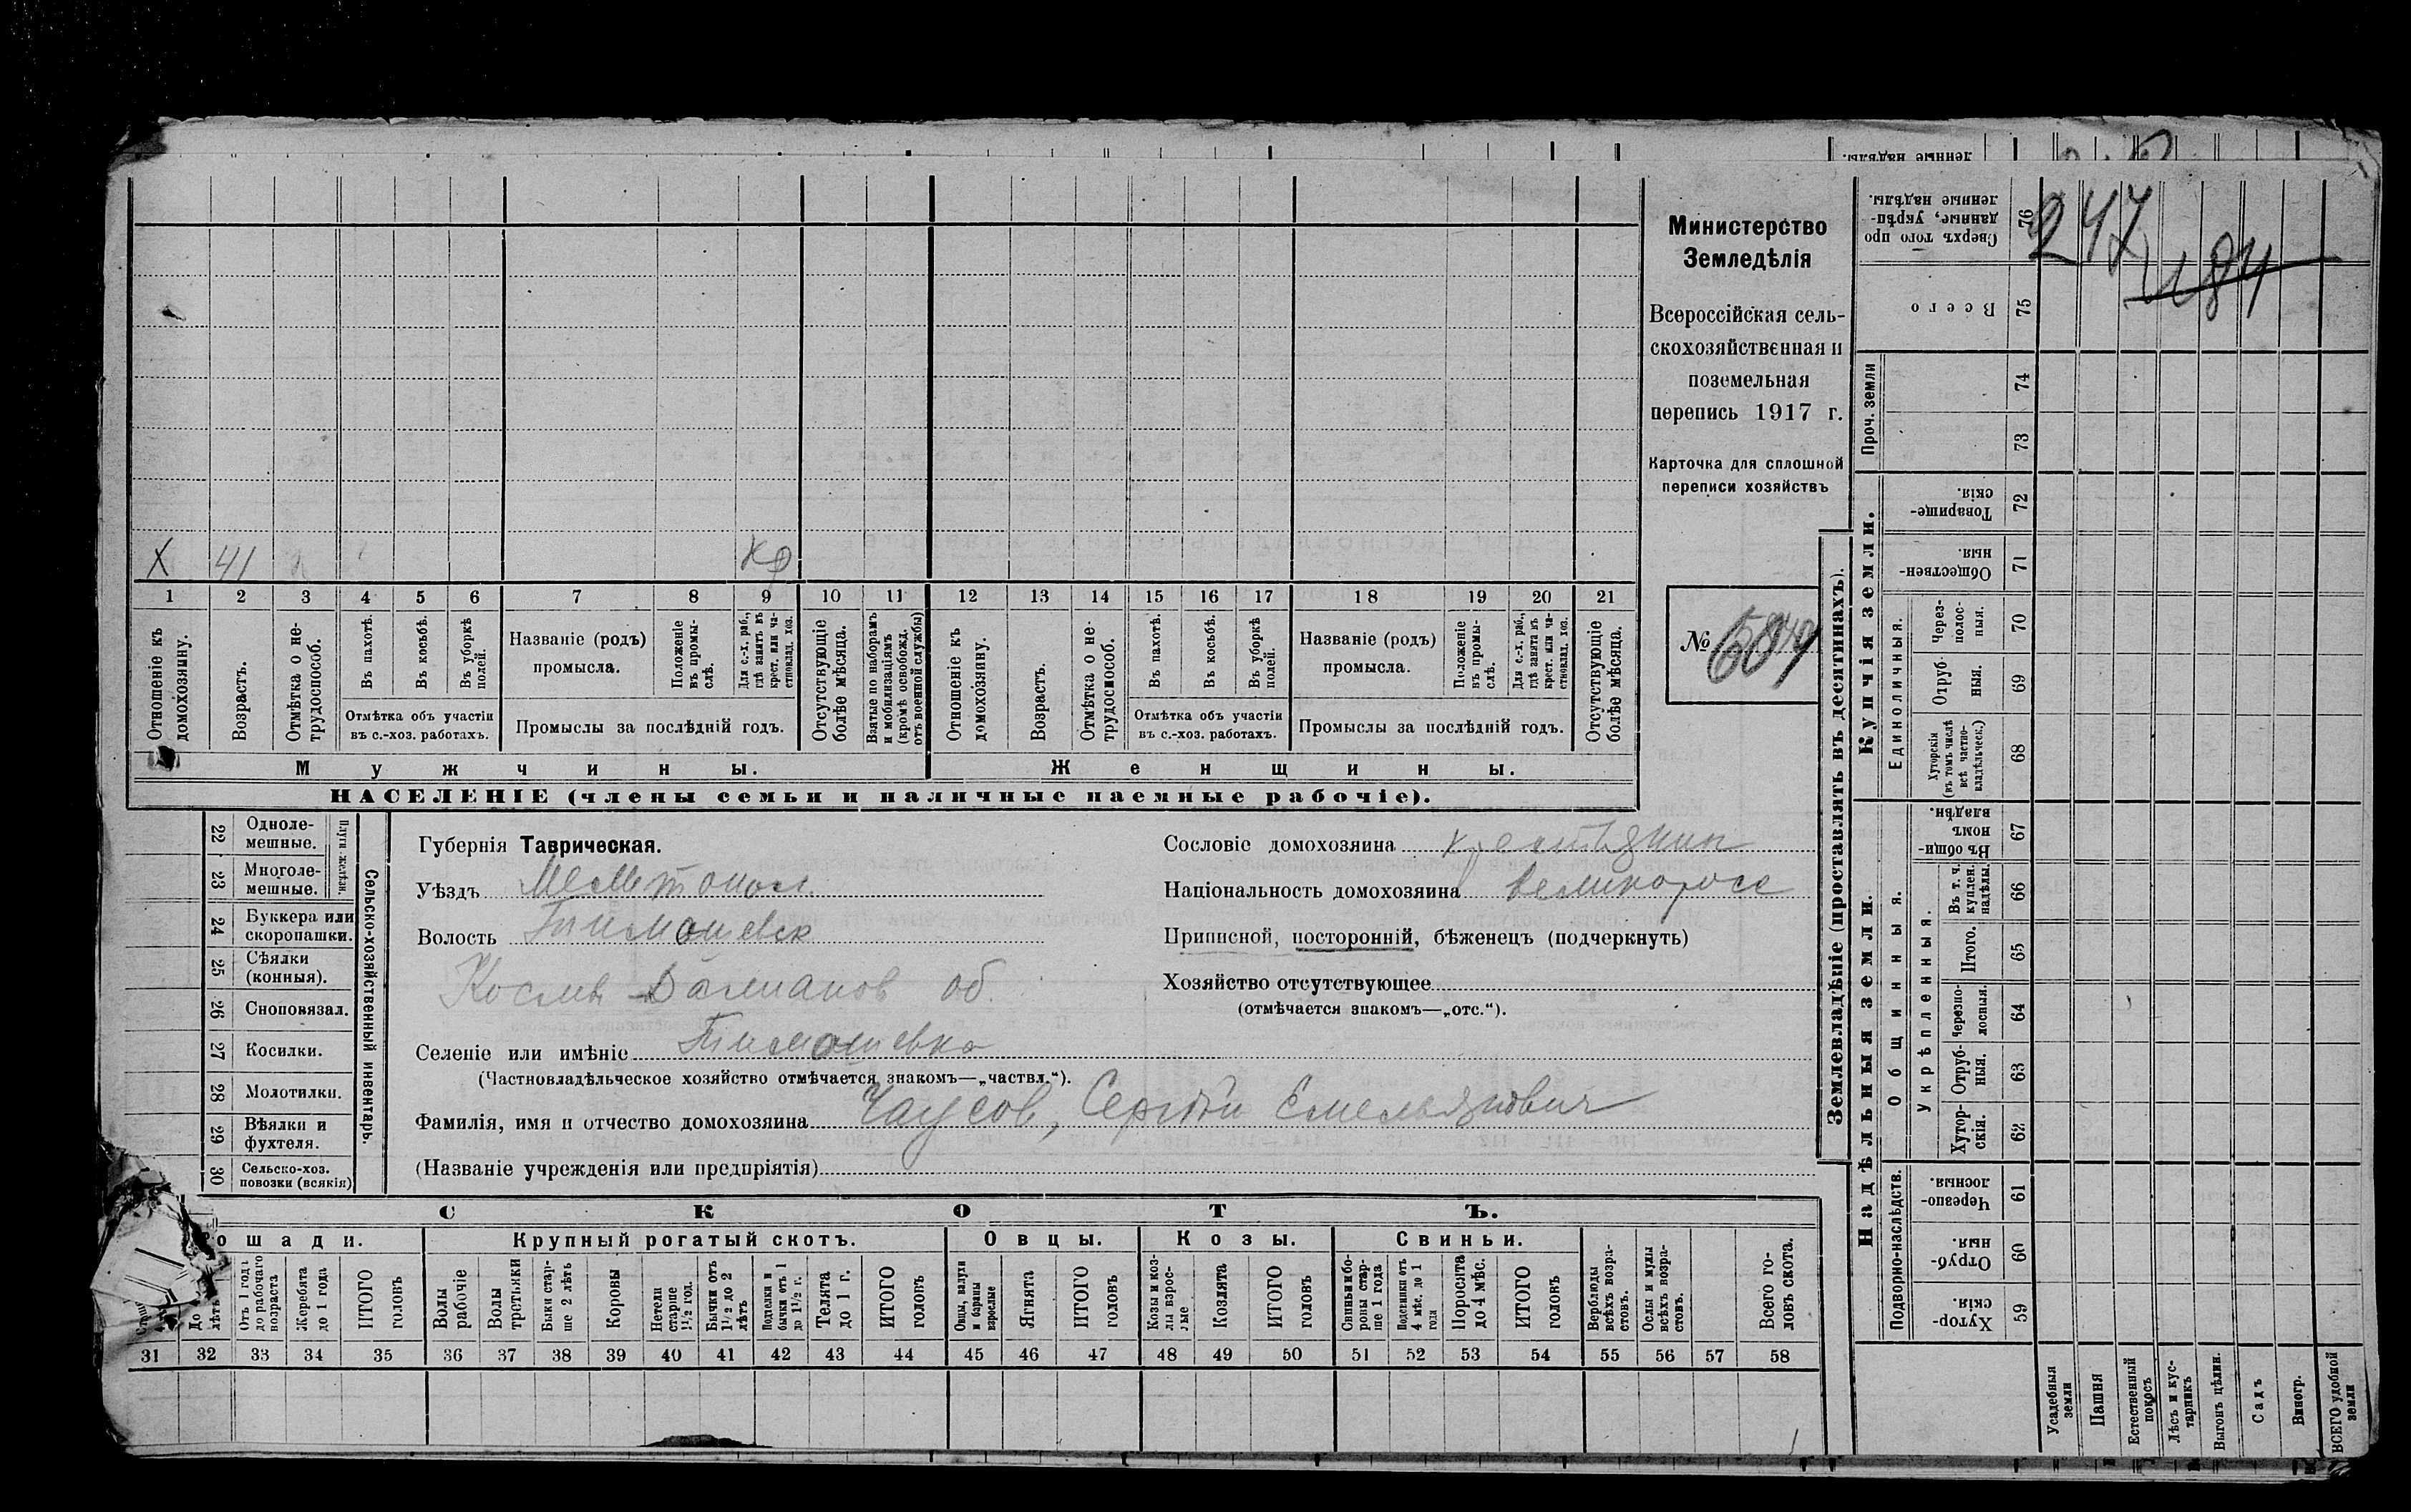 Министерство
Земледѣлія
Всероссійская сель-
скохозяйственная и
поземельная
перепись 1917 г.
Карточка для сплошной
переписи хозяйствъ
№
Х 41 кр
1 2 3 4 5 6 7 8 9 10 11 12 13 14 15 16 17 18 19 20 21
Отношеніе къ домохозяину.
Возрастъ.
Отмѣтка о не-трудоспособ.
Въ пахотѣ.
Въ косьбѣ.
Въ уборкѣ полей.
Отмѣтка объ участіи
въ с.-хоз. работахъ.
Названіе (родъ)
промысла.
Положеніе въ промы-слѣ.
Для с.-х. раб., гдѣ занятъ въ крест. или ча-стновлад. хоз.
Промыслы за послѣдній годъ.
Отсутствующіе болѣе мѣсяца.
Взятые по наборамъ и мобилизаціямъ (кромѣ освобожд. отъ военной службы)
Отношеніе къ домохозяину.
Возрастъ.
Отмѣтка о не-трудоспособ.
Въ пахотѣ.
Въ косьбѣ.
Въ уборкѣ полей.
Отмѣтка объ участіи
въ с.-хоз. работахъ.
Названіе (родъ)
промысла.
Положеніе въ промы-слѣ.
Для с.-х. раб., гдѣ занятъ въ крест. или ча-стновлад. хоз.
Промыслы за послѣдній годъ.
Отсутствующіе болѣе мѣсяца.
Мужчины.
Женщины.
НАСЕЛЕНІЕ (члены семьи и наличные наемные рабочіе).
22 Одноле-мешные.
23 Многоле-мешные.
24 Буккера или скоропашки.
25 Сѣялки (конныя).
26 Сноповязал.
27 Косилки.
28 Молотилки.
29 Вѣялки и фухтеля.
30 Сельско-хоз. повозки (всякія)
Сельско-хозяйственный инвентарь.
Губернія Таврическая.
Уѣздъ Мелитопол.
Волость Тимошевск
об.
Селеніе или имѣніе Тимошевка
(Частновладѣльческое хозяйство отмѣчается знакомъ—„частвл.“).
Фамилія, имя и отчество домохозяина Чаусов, Сергѣй Емельянович
(Названіе учрежденія или предпріятія)
Сословіе домохозяина крестьянин
Національность домохозяина великоросс
Приписной, посторонній, бѣженецъ (подчеркнуть)
Хозяйство отсутствующее
(отмѣчается знакомъ—„отс.“).
СКОТЪ.
ошади.
Крупный рогатый скотъ.
Овцы.
Козы.
Свиньи.
Отъ 1 года до рабочаго возраста
Жеребята до 1 года
ИТОГО головъ
Волы рабочіе
Волы третьяки
Быки стар-ше 2 лѣтъ
Коровы
Нетели старше 1½ год.
Бычки отъ 1½ до 2 лѣтъ
Подтелки и бычки отъ 1 до 1½ г.
Телята до 1 г.
ИТОГО головъ
Овцы, валухи и бараны взрослые
Ягнята
ИТОГО головъ
Козы и коз-лы взрос-лые
Козлята
ИТОГО головъ
Свиньи и бо-ровы стар-ше 1 года
Подсвинки отъ 4 мѣс. до 1 года
Поросята до 4 мѣс.
ИТОГО головъ
Верблюды всѣхъ возра-стовъ.
Ослы и мулы всѣхъ возра-стовъ.
Всего го-ловъ скота.
31 32 33 34 35 36 37 38 39 40 41 42 43 44 45 46 47 48 49 50 51 52 53 54 55 56 57 58
Землевладѣніе (проставлять въ десятинахъ).
Купчія земли.
Надѣльныя земли.
247
184
76 Сверхъ того про-данные, укрѣп-ленные надѣлы.
75 Всего
Проч. земли
74
73
72 Товарище-скія.
71 Обществен-ныя.
Единоличныя.
70 Через-полос-ныя.
69 Отруб-ныя.
68 Хуторскія (въ томъ числѣ всѣ частно-владѣльческ.)
Общинныя.
67 Въ общи-номъ владѣн.
Укрѣпленныя.
66 Въ т. ч. куплен. надѣлы.
65 Итого.
64 Черезпо-лосныя.
63 Отруб-ныя.
62 Хутор-скія.
Подворно-наслѣдств.
61 Черезпо-лосныя.
60 Отруб-ныя.
59 Хутор-скія.
Усадебныя земли
Пашня
Естественный покосъ
Лѣсъ и кус-тарникъ
Выгонъ цѣлин.
Садъ
Виногр.
ВСЕГО удобной земли